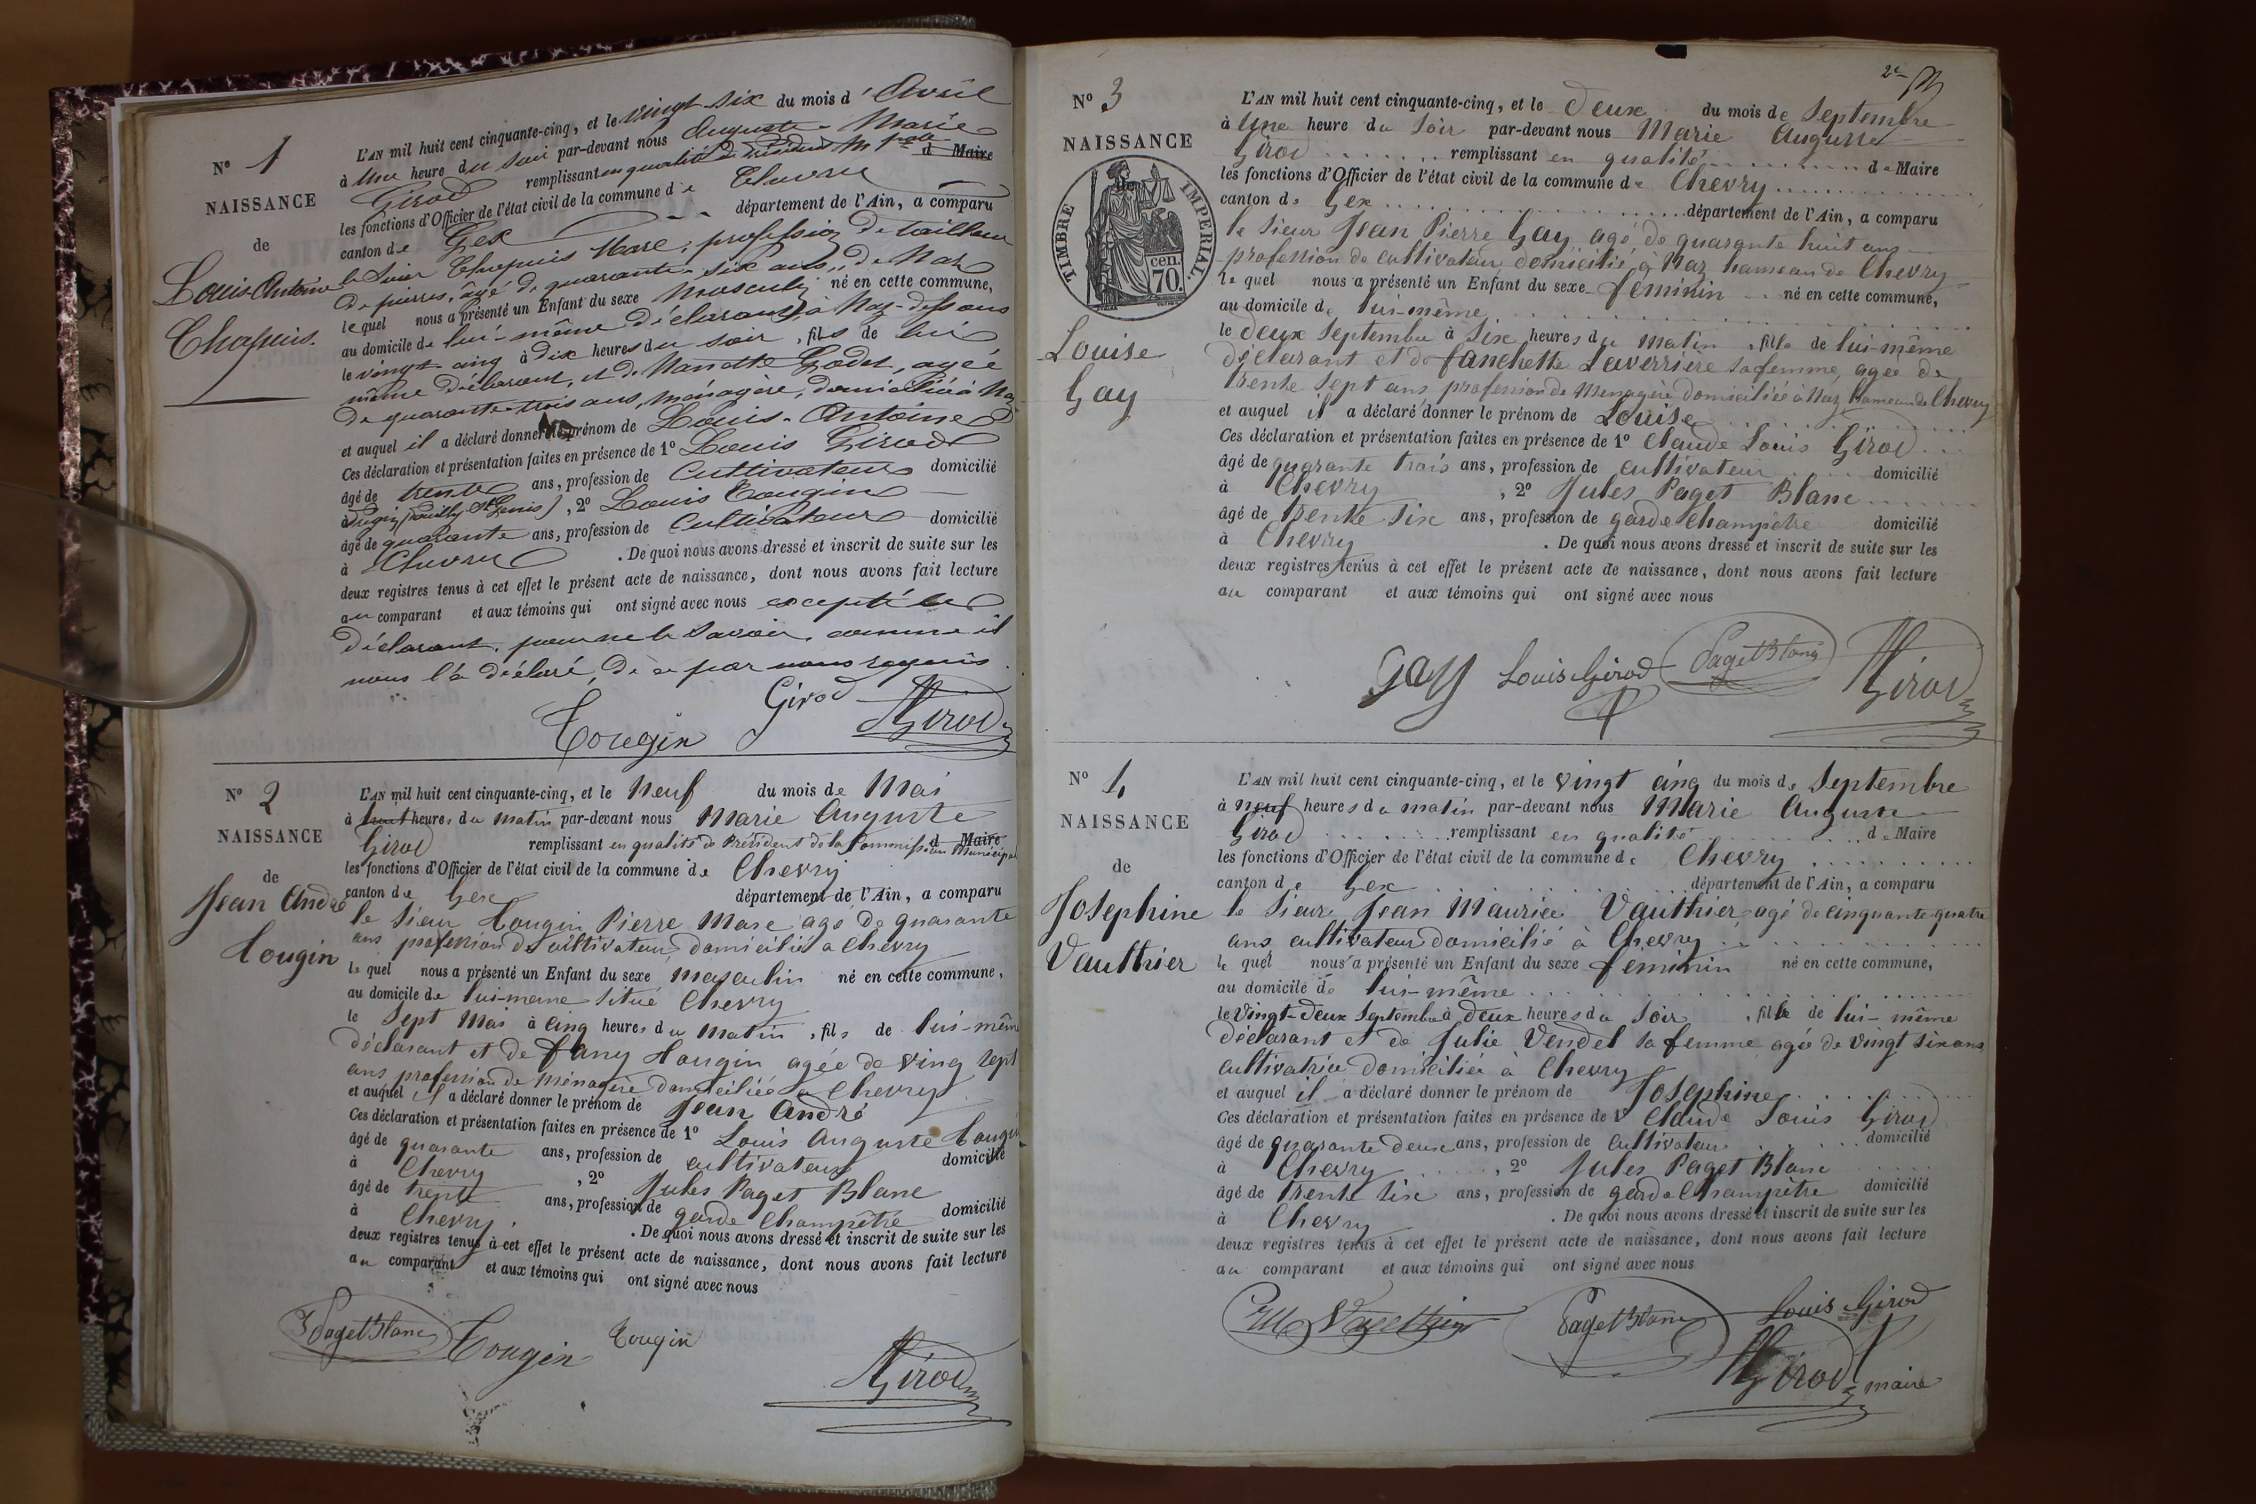 N° 1
NAISSANCE
de
Louis Antoine
Chapuis.
L'AN mil huit cent cinquante-cinq, et le vingt six du mois d'Avril
à Une heure du soir par-devant nous Auguste Marie
Girod remplissant en qualité de Président d Maire
les fonctions d'Officier de l'état civil de la commune de Chevry
canton de Gex département de l'Ain, a comparu
le Sieur Chapuis Marc, profession de tailleur
de pierres, âgé de quarante-six ans, de Naz
lequel nous a présenté un Enfant du sexe Masculin né en cette commune,
au domicile de lui-même déclarant, à Naz-dessous
le vingt cinq à dix heures du soir, fils de lui
même déclarant, et de Nanette Godet, agée
de quarante-trois ans, ménagère, domiciliée à Naz
et auquel il a déclaré donner le prénom de Louis-Antoine
Ces déclaration et présentation faites en présence de 1° Louis Girod
âgé de trente ans, profession de Cultivateur domicilié
à (Pouilly St Genis), 2° Louis Tougin
âgé de quarante ans, profession de Cultivateur domicilié
à Chevry . De quoi nous avons dressé et inscrit de suite sur les
deux registres tenus à cet effet le présent acte de naissance, dont nous avons fait lecture
au comparant et aux témoins qui ont signé avec nous excepté le
déclarant, pour ne le savoir, comme il
nous l'a déclaré, de ce par nous requis.
Tougin Girod Girod
N° 2
NAISSANCE
de
Jean André
Tougin
L'AN mil huit cent cinquante-cinq, et le Neuf du mois de Mai
à huit heures du matin par-devant nous Marie Auguste
Girod remplissant en qualité de Président de la Commission Municipale d Maire
les fonctions d'Officier de l'état civil de la commune de Chevry
canton de Gex département de l'Ain, a comparu
le Sieur Tougin Pierre Marc agé de quarante
ans profession de cultivateur domicilié à Chevry
lequel nous a présenté un Enfant du sexe masculin né en cette commune,
au domicile de lui-meme situé Chevry
le Sept Mai à Cinq heures du Matin, fils de lui-même
déclarant et de fany Tougin agée de ving sept
ans profession de Ménagère domiciliée à Chevry
et auquel il a déclaré donner le prénom de Jean André
Ces déclaration et présentation faites en présence de 1° Louis Auguste Tougin
âgé de quarante ans, profession de cultivateur domicilié
à Chevry , 2° Jules Paget Blanc
âgé de trente ans, profession de garde Champêtre domicilié
à Chevry . De quoi nous avons dressé et inscrit de suite sur les
deux registres tenus à cet effet le présent acte de naissance, dont nous avons fait lecture
au comparant et aux témoins qui ont signé avec nous
J Paget Blanc Tougin Tougin Girod
2e
N° 3
NAISSANCE
TIMBRE IMPERIAL.
70. cen.
Louise
Gay
L'AN mil huit cent cinquante-cinq, et le Deux du mois de Septembre
à Une heure du Soir par-devant nous Marie Auguste
Girod remplissant en qualité de Maire
les fonctions d'Officier de l'état civil de la commune de Chevry
canton de Gex département de l'Ain, a comparu
le Sieur Jean Pierre Gay agé de quarante huit ans
profession de cultivateur domicilié à Naz hameau de Chevry
lequel nous a présenté un Enfant du sexe feminin né en cette commune,
au domicile de lui-même
le deux Septembre à Six heures du matin, fille de lui-même
déclarant et de fanchette Laverrière sa femme, agée de
trente Sept ans profession de Menagère domiciliée à Naz hameau de Chevry
et auquel il a déclaré donner le prénom de Louise
Ces déclaration et présentation faites en présence de 1° Claude Louis Girod
âgé de quarante trois ans, profession de cultivateur domicilié
à Chevry , 2° Jules Paget Blanc
âgé de trente Six ans, profession de garde Champêtre domicilié
à Chevry . De quoi nous avons dressé et inscrit de suite sur les
deux registres tenus à cet effet le présent acte de naissance, dont nous avons fait lecture
au comparant et aux témoins qui ont signé avec nous
Gay Louis Girod Paget Blanc Girod
N° 4
NAISSANCE
de
Josephine
Vauthier
L'AN mil huit cent cinquante-cinq, et le vingt cinq du mois de Septembre
à neuf heures du matin par-devant nous Marie Auguste
Girod remplissant en qualité de Maire
les fonctions d'Officier de l'état civil de la commune de Chevry
canton de Gex département de l'Ain, a comparu
le Sieur Jean Maurice Vauthier agé de cinquante-quatre
ans cultivateur domicilié à Chevry
lequel nous a présenté un Enfant du sexe feminin né en cette commune,
au domicile de lui-même
le vingt-deux Septembre à deux heures du Soir, fille de lui-même
déclarant et de Julie Vendel sa femme agé de vingt six ans
cultivatrice domiciliée à Chevry
et auquel il a déclaré donner le prénom de Josephine
Ces déclaration et présentation faites en présence de 1° Claude Louis Girod
âgé de quarante deux ans, profession de Cultivateur domicilié
à Chevry , 2° Jules Paget Blanc
âgé de trente six ans, profession de garde Champêtre domicilié
à Chevry . De quoi nous avons dressé et inscrit de suite sur les
deux registres tenus à cet effet le présent acte de naissance, dont nous avons fait lecture
au comparant et aux témoins qui ont signé avec nous
Paget Blanc Louis Girod
Girod maire